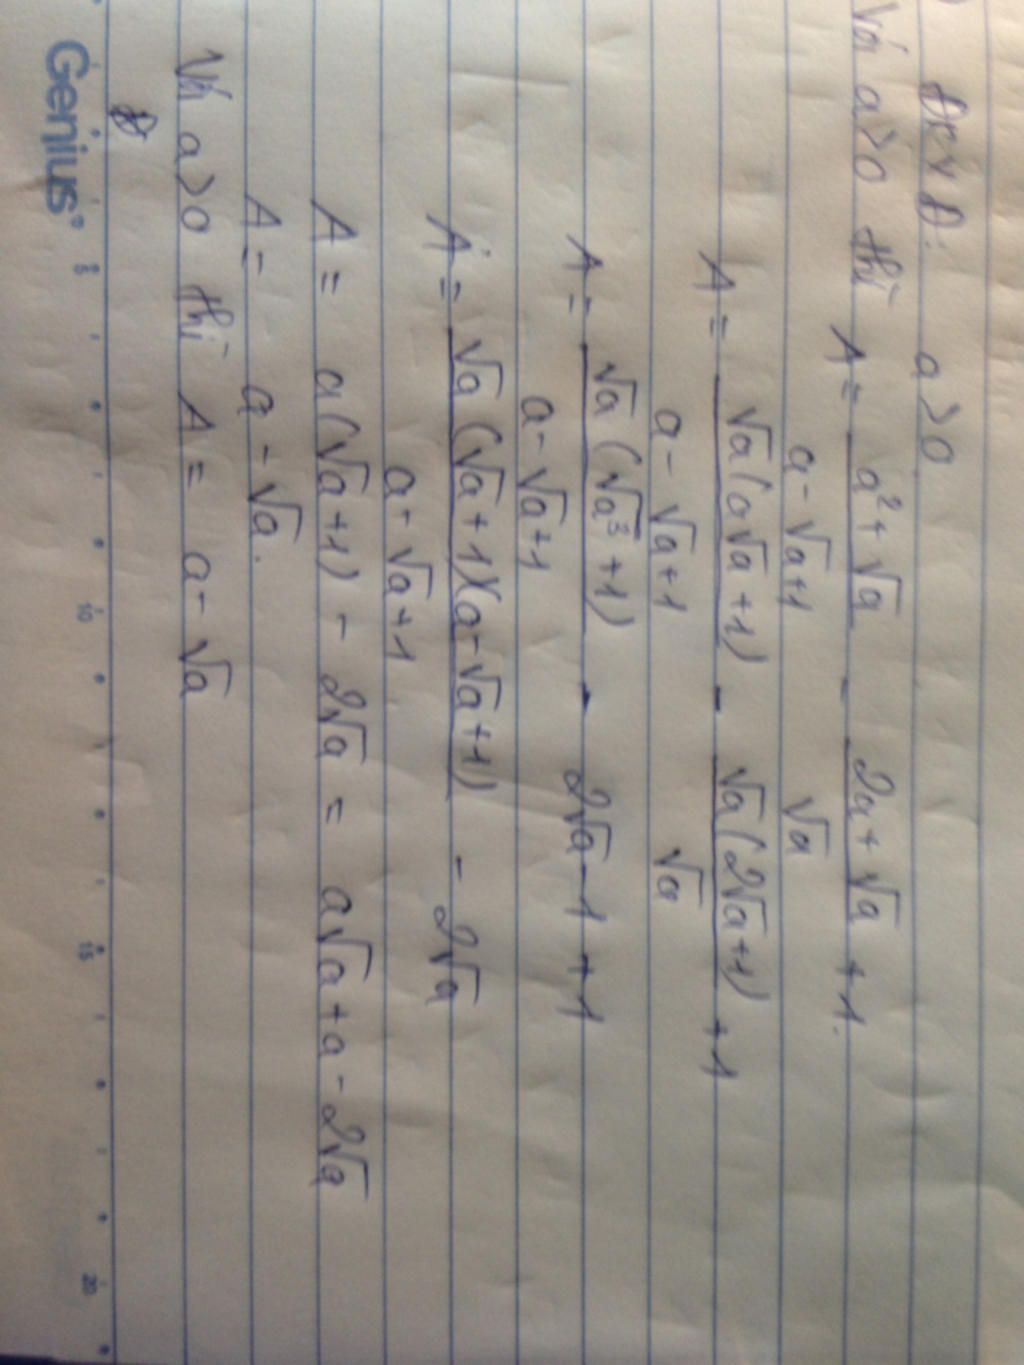 ĐKXĐ: a > 0
Với a > 0 thì A = \frac{a² + √a}{a - √a + 1} - \frac{2a + √a}{√a} + 1.
A = \frac{√a(a√a + 1)}{a - √a + 1} - \frac{√a(2√a + 1)}{√a} + 1
A = \frac{√a(√a³ + 1)}{a - √a + 1} - 2√a - 1 + 1
A = \frac{√a(√a + 1)(a - √a + 1)}{a - √a + 1} - 2√a
A = a(√a + 1) - 2√a = a√a + a - 2√a
A = a - √a.
Với a > 0 thì A = a - √a
Genius® 5 10 15 20